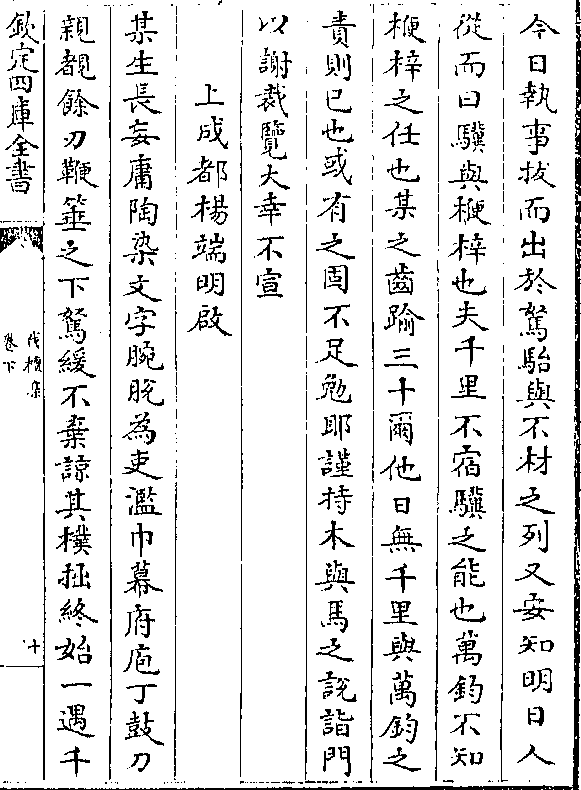 今日執事拔而出於駑駘與不材之列又安知明日人
從而曰驥與楩梓也夫千里不宿驥之能也萬鈞不知
楩梓之任也某之齒踰三十爾他日無千里與萬鈞之
責則已也或有之固不足勉耶謹持木與馬之説詣門
以謝裁覽大幸不宣
上成都楊端明啟
某生長妄庸陶染文字腕脱為吏濫巾幕府庖丁鼓刀
親覩餘刃鞭箠之下駑緩不棄諒其樸拙終始一遇千
欽定四庫全書
伐檀集
卷下
十